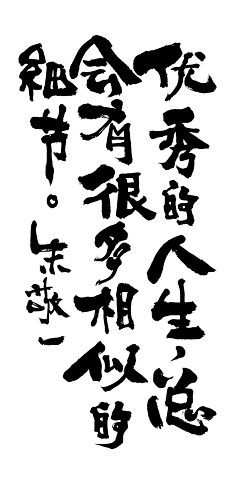 优秀的人生，总
会有很多相似的
细节。朱敬一